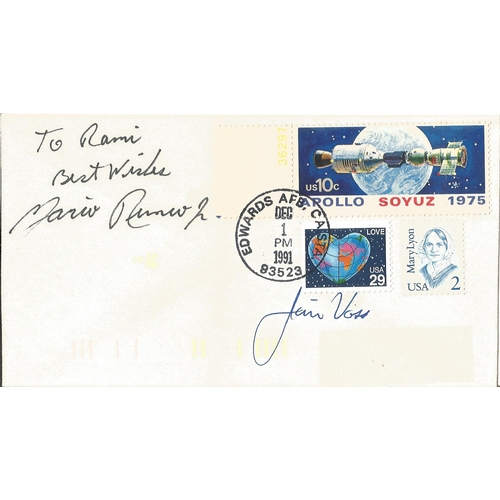 To Rami
Best Wishes
Mario Runco Jr.
36297
US 10c
APOLLO SOYUZ 1975
EDWARDS AFB, CA STA
DEC
1
PM
1991
93523
LOVE
USA
29
Mary Lyon
USA 2
Jim Voss